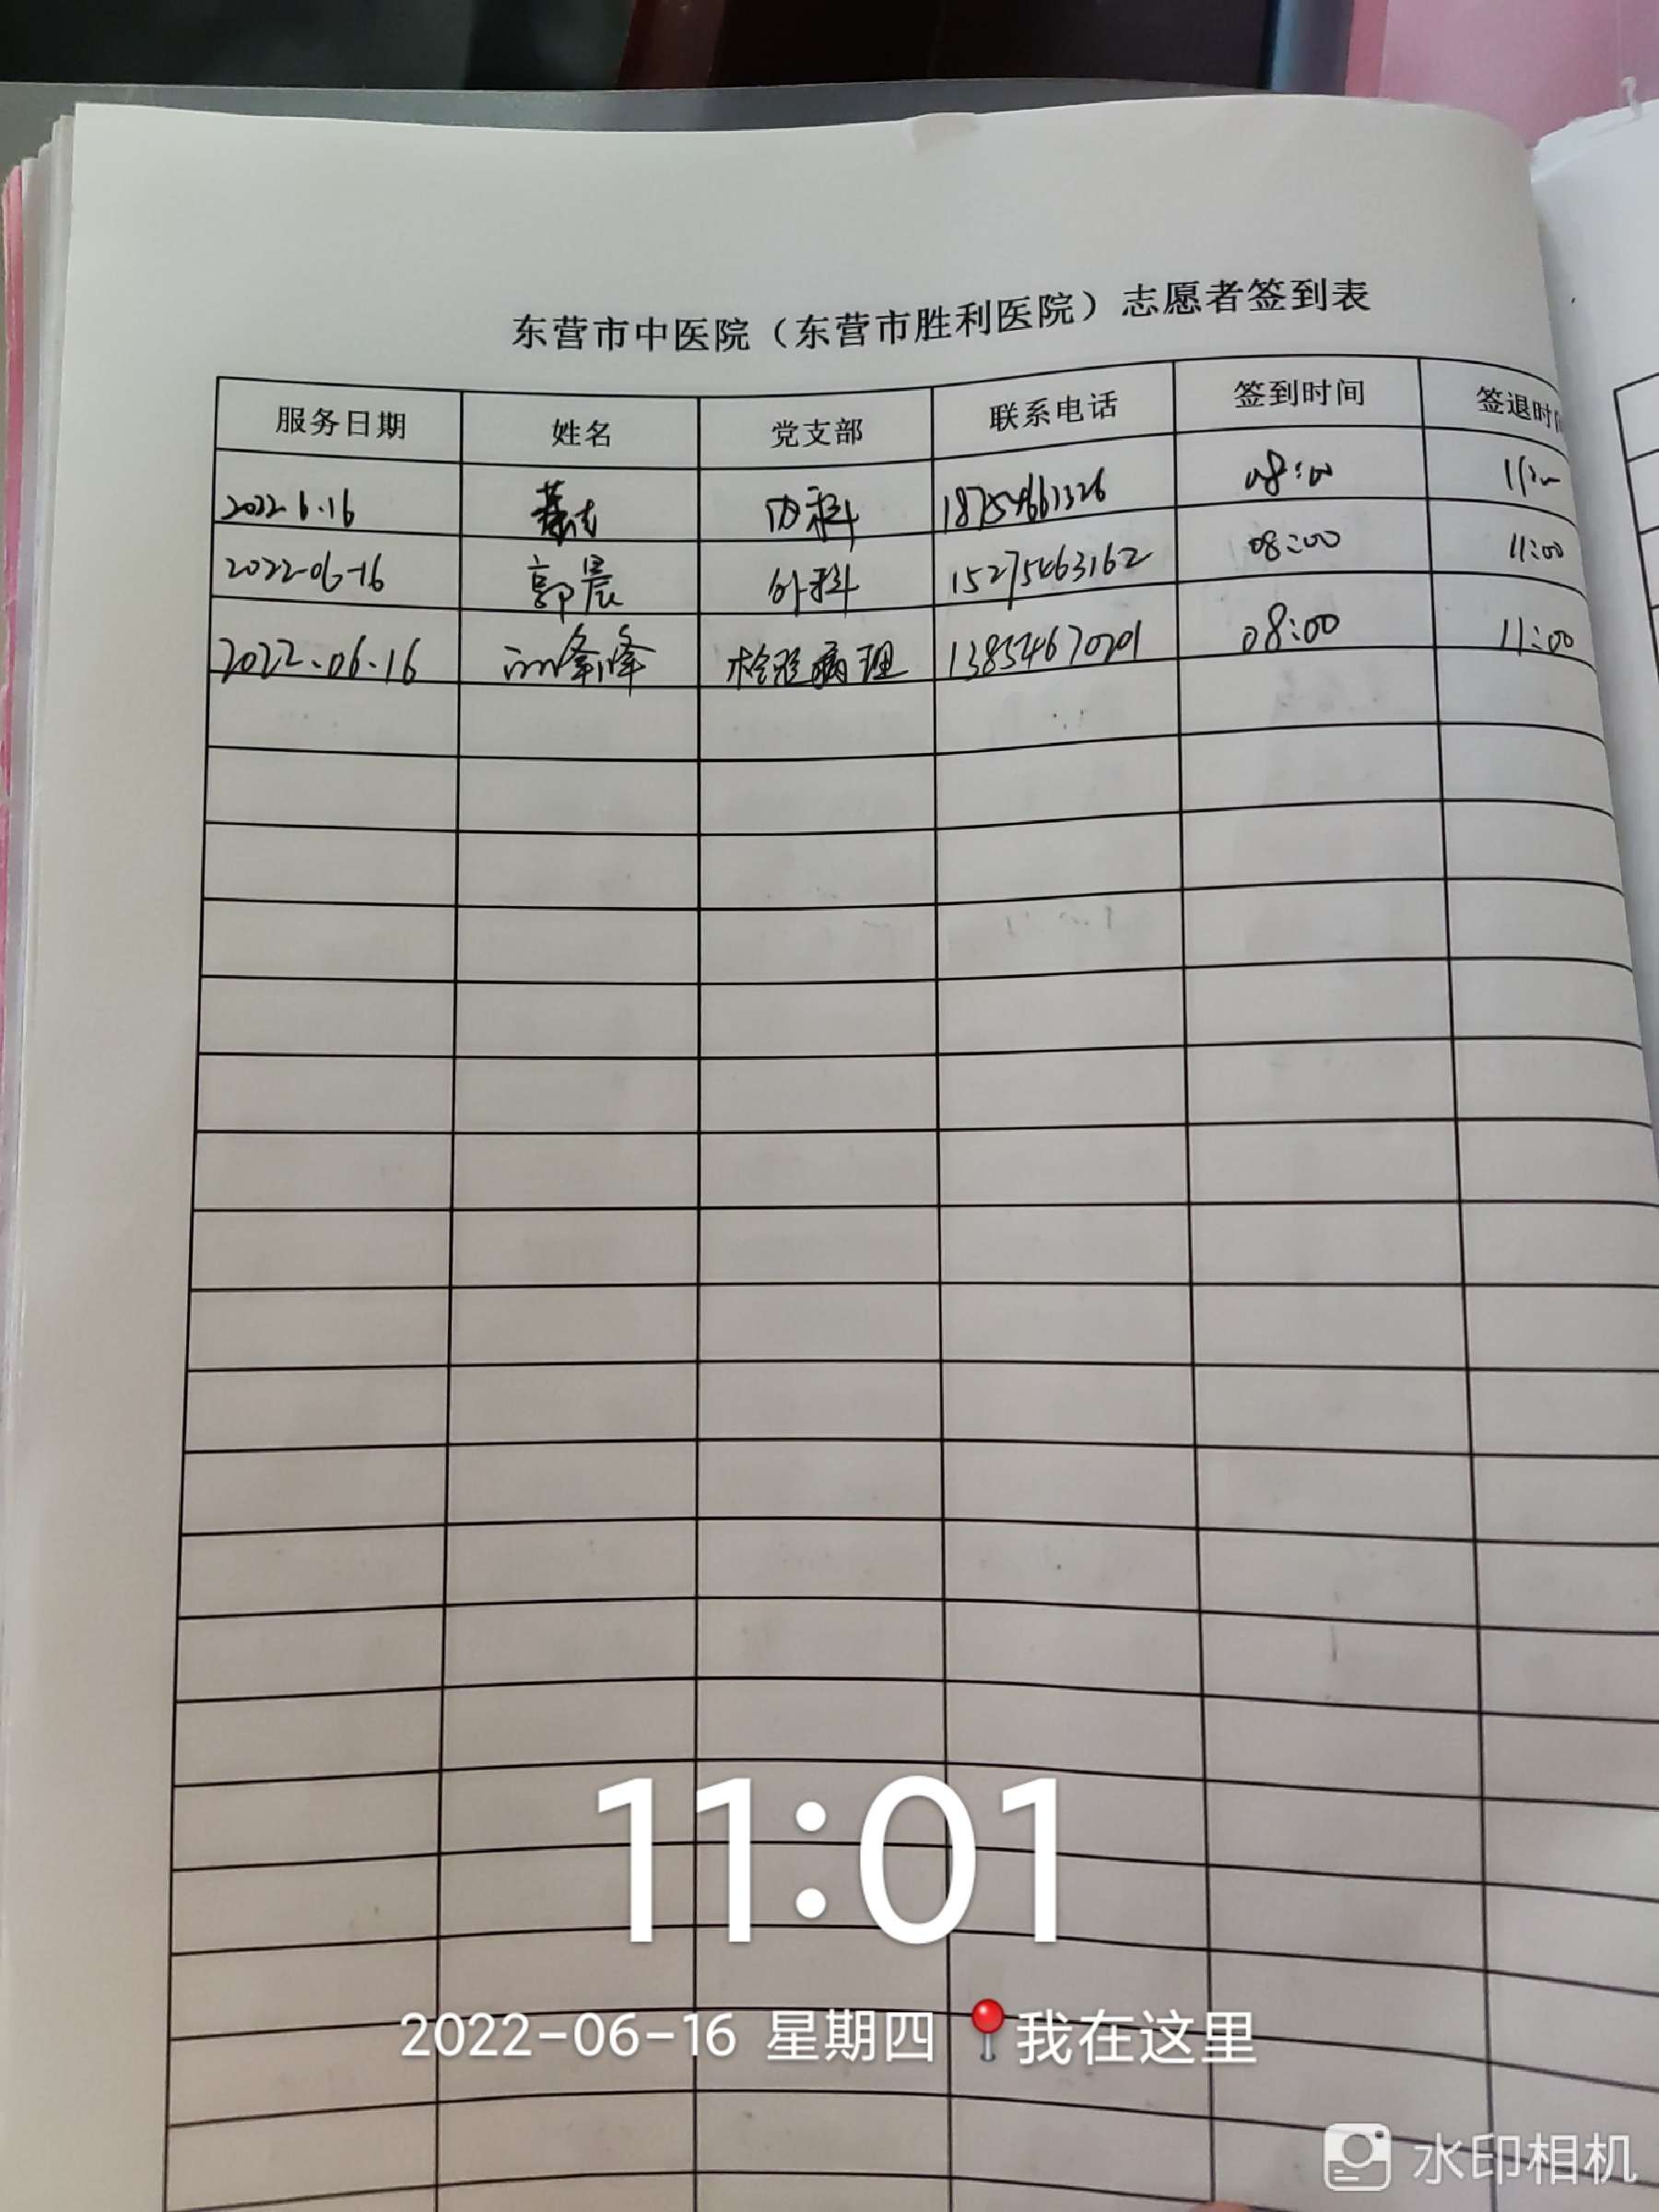 东营市中医院（东营市胜利医院）志愿者签到表
服务日期 姓名 党支部 联系电话 签到时间 签退时间
2022.6.16 内科 18754661326 08:00 11:00
2022-06-16 郭晨 外科 15275463162 08:00 11:00
2022.06.16 峰峰 检验病理 13854670201 08:00 11:00
11:01
2022-06-16 星期四 📍我在这里
水印相机